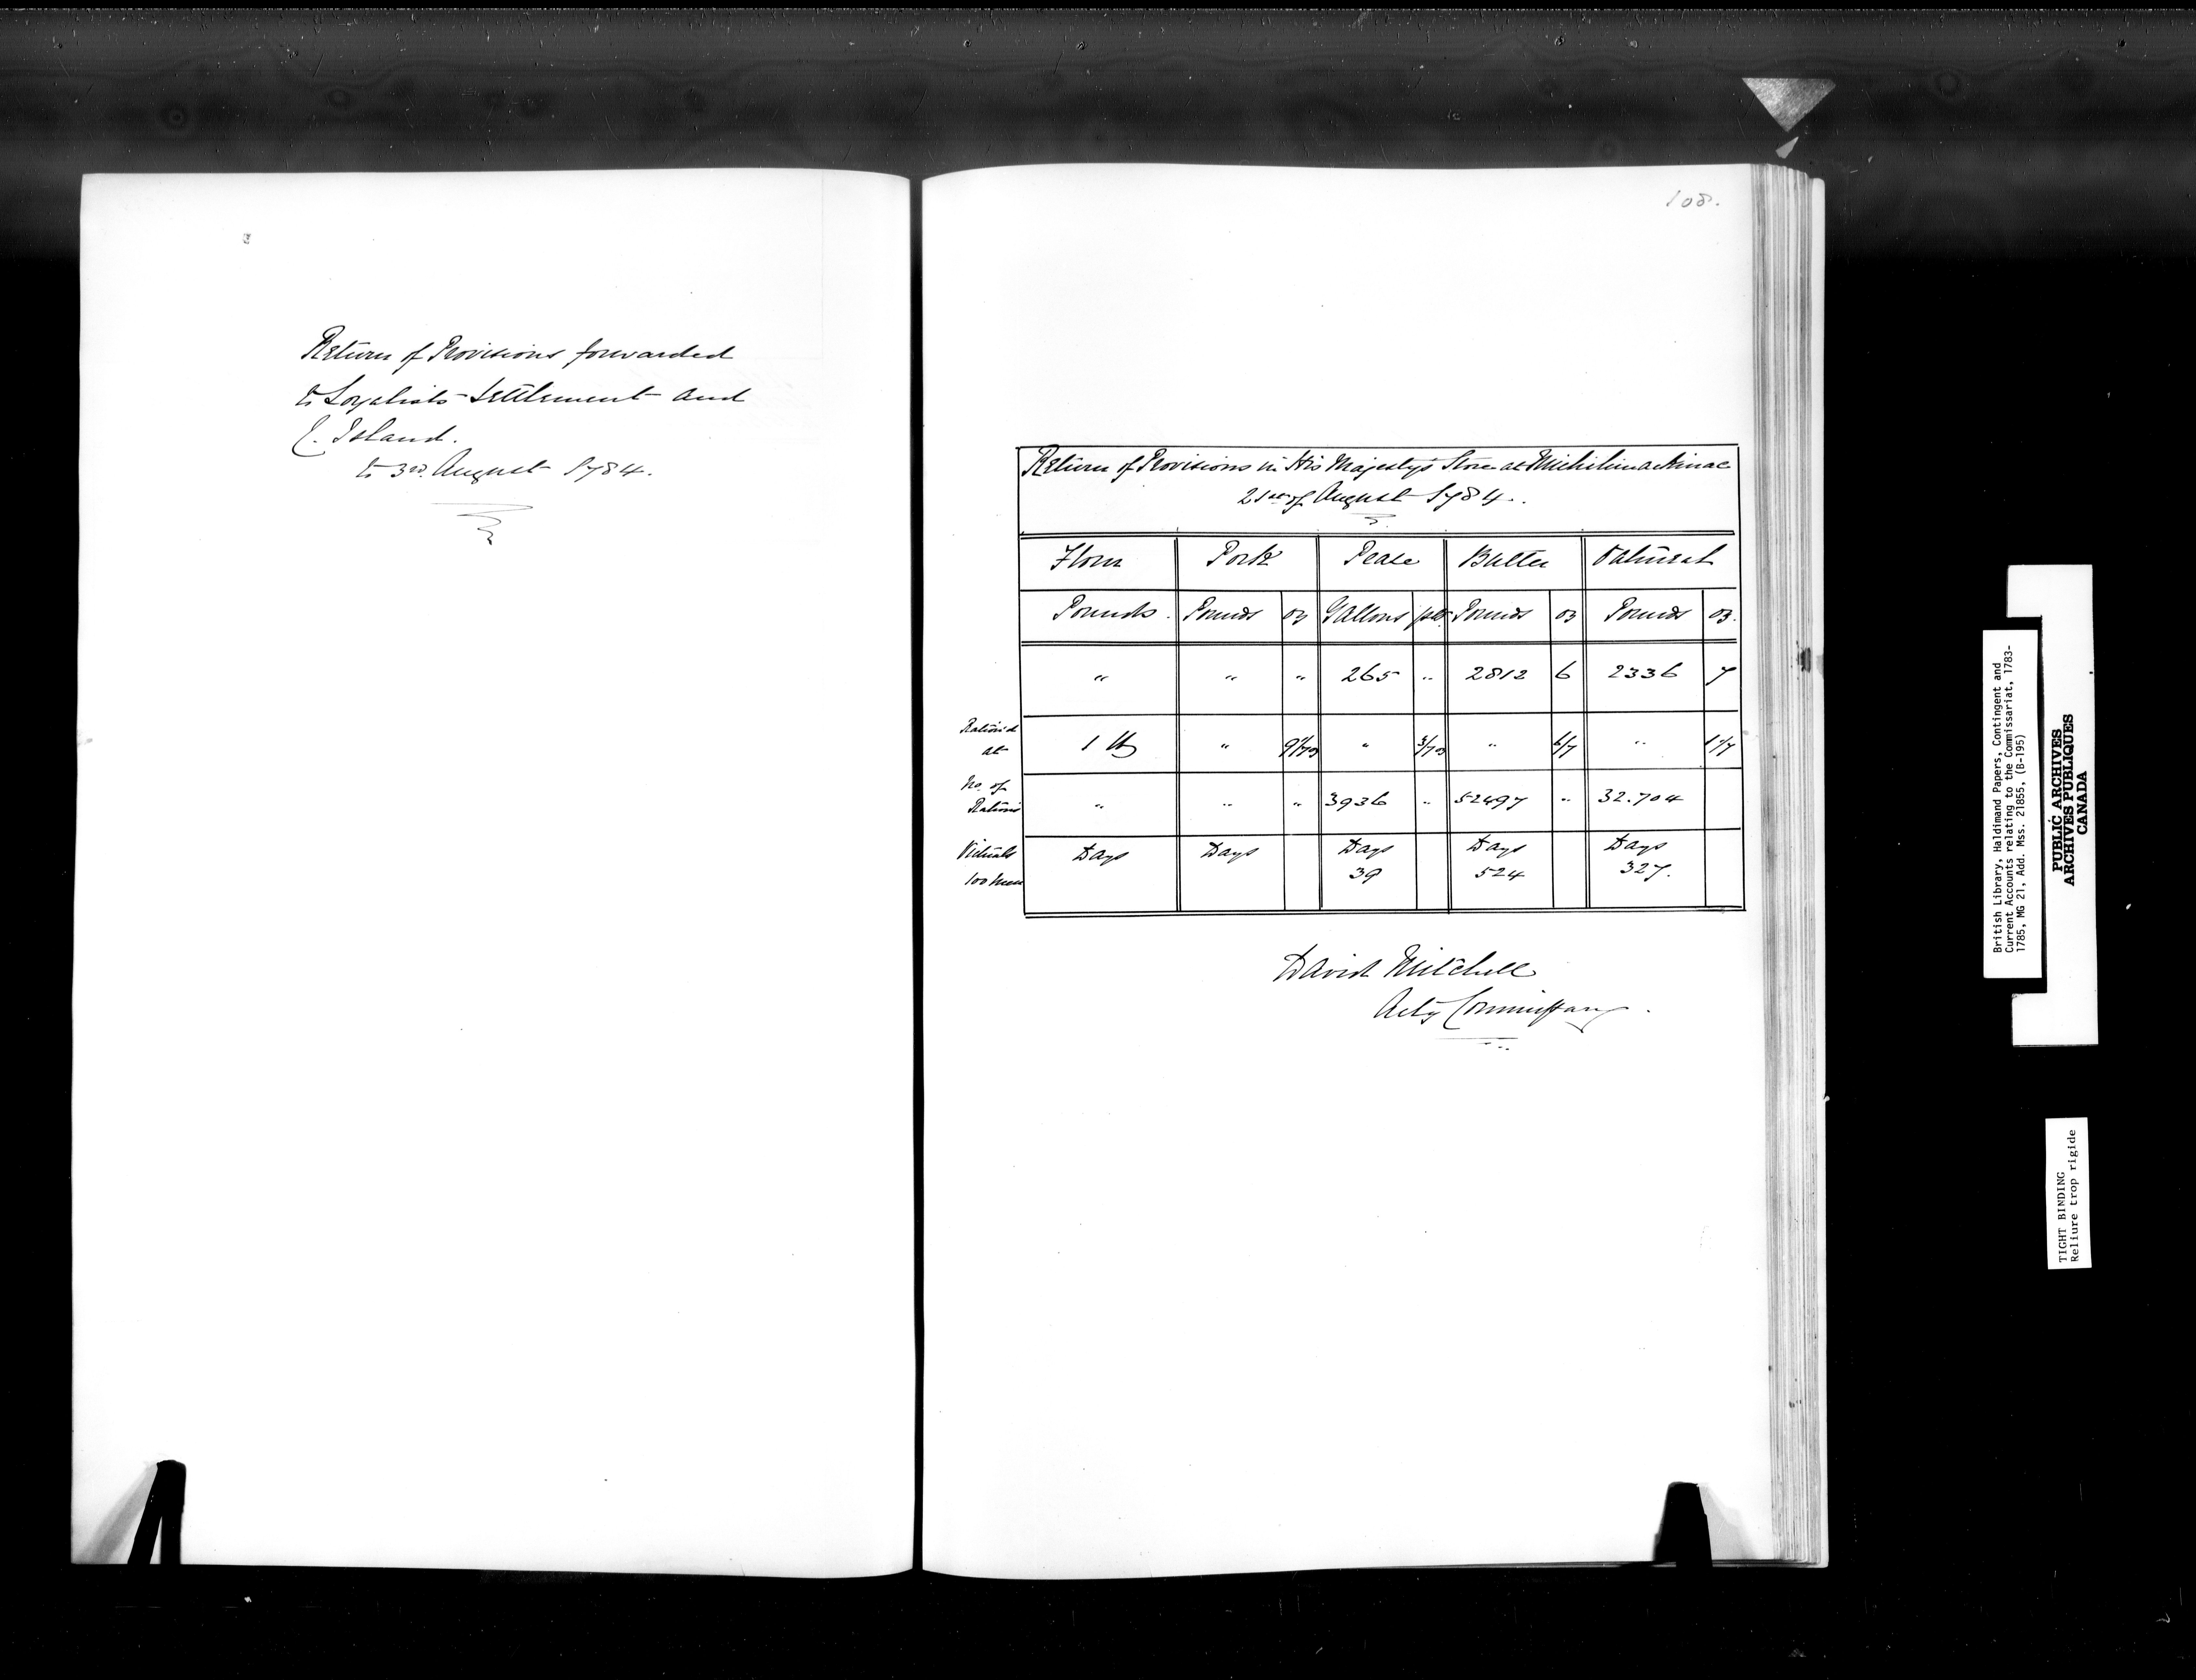 Return of Provisions forwarded
to Loyalists Settlement and
C. Island.
to 3rd. August 1784.
108.
Return of Provisions in His Majesty's Store at Michilimackinac
21st of August 1784.
Flour Pork Pease Butter Oatmeal
Pounds. Pounds oz Gallons pts Pounds oz Pounds oz.
" " " 265 " 2812 6 2336 7
Ration'd
at
1 lb " " " "
No. of
Rations
" " " 3936 " 52497 " 32.704
Victuals
100 Men
Days Days Days Days Days
39 524 327.
David Mitchell
Actg Commissary.
British Library, Haldimand Papers, Contingent and
Current Accounts relating to the Commissariat, 1783-
1785, MG 21, Add. Mss. 21855, (B-195)
PUBLIC ARCHIVES
ARCHIVES PUBLIQUES
CANADA
TIGHT BINDING
Reliure trop rigide